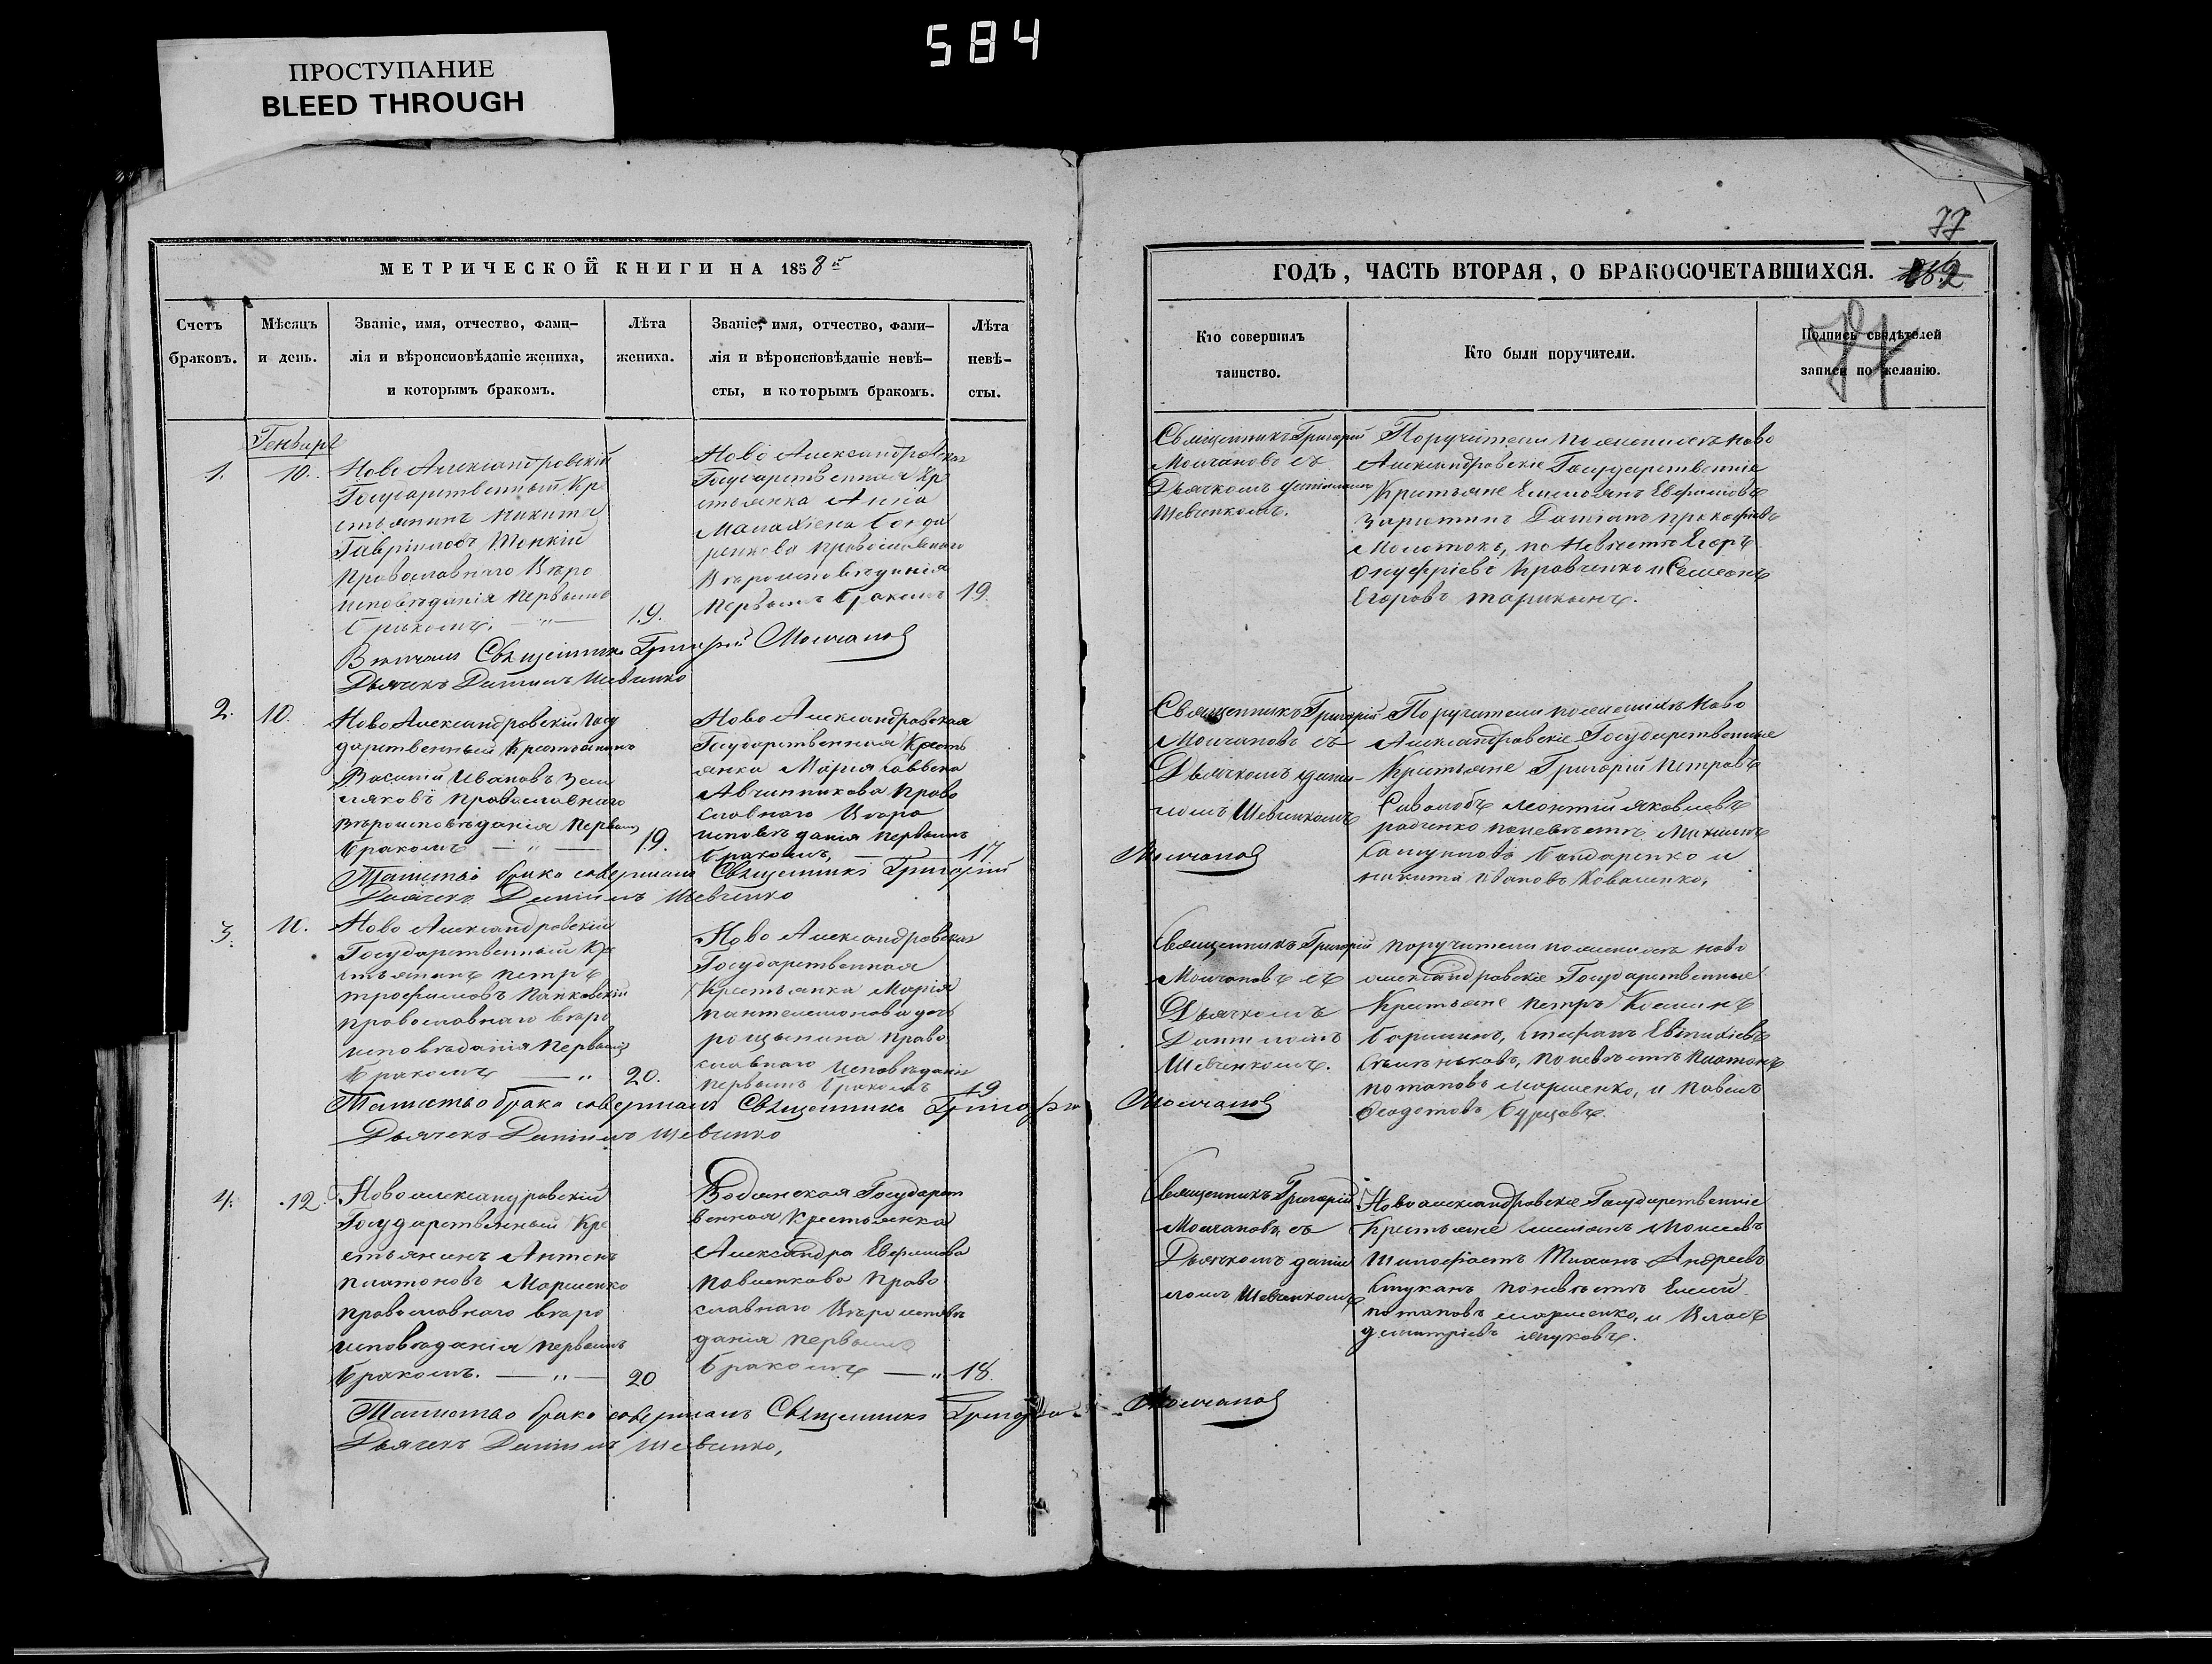 584
ПРОСТУПАНИЕ
BLEED THROUGH
МЕТРИЧЕСКОЙ КНИГИ НА 1858й
Счетъ
браковъ.
Мѣсяцъ
и день.
Званіе, имя, отчество, фами-
лія и вѣроисповѣданіе жениха,
и которымъ бракомъ.
Лѣта
жениха.
Званіе, имя, отчество, фами-
лія и вѣроисповѣданіе невѣ-
сты, и которымъ бракомъ.
Лѣта
невѣ-
сты.
Генварь
1.
10.
Ново Александровскій
Государственный Кре
стьянинъ Никита
Гавріиловъ Тонкій
Православнаго Вѣро
исповѣданія первымъ
бракомъ.
19.
Ново Александровская
Государственная Кр
стьянка Анна
Малахіева Бонда
ренкова православнаго
Вѣроисповѣданія
первымъ бракомъ
19.
Вѣнчалъ Священникъ Григорій Молчановъ
Дьячекъ Даніилъ Шевченко
2.
10.
Ново Александровскій Госу
дарственный Крестьянинъ
Василій Ивановъ Зем
ляковъ православнаго
Вѣроисповѣданія первымъ
бракомъ
19.
Ново Александровская
Государственная Кресть
янка Марія Саввена
Авчинникова право
славнаго Вѣро
исповѣданія первымъ
бракомъ,
17
Таинство брака совершалъ Священникъ Григорій
Дьячекъ Даніилъ Шевченко
3.
11.
Ново Александровскій
Государственный Кре
стьянинъ Петръ
Трофимовъ Панковскій
православнаго вѣро
исповѣданія первымъ
бракомъ
20.
Ново Александровская
Государственная
Крестьянка Марія
Пантелимонова
православнаго исповѣданія
первымъ бракомъ
19
Таинство брака совершалъ Священникъ Григорій
Дьячекъ Даніилъ Шевченко
4.
12.
Новоалександровскій
Государственный Кре
стьянинъ Антонъ
Платоновъ Марченко
православнаго вѣро
исповѣданія первымъ
бракомъ.
20
Водянская Государст
венная Крестьянка
Александра Ефимова
Павленкова право
славнаго Вѣроисповѣ
данія первымъ
бракомъ
18.
Таинство брака совершалъ Священникъ Григорій
Дьячекъ Даніилъ Шевченко,
77
ГОДЪ, ЧАСТЬ ВТОРАЯ, О БРАКОСОЧЕТАВШИХСЯ.
Кто совершилъ
таинство.
Кто были поручители.
Подпись свидѣтелей
записи по желанію.
77
Священникъ Григорій
Молчановъ съ
Дьячкомъ Даніиломъ
Шевченкомъ.
Поручители по женихѣ Ново
Александровскіе Государственніе
Крестьяне Емельянъ Ефимовъ
Даміанъ Прокофіевъ
Молотокъ, по Невѣстѣ Егоръ
Онуфріевъ Кравченко и Симеонъ
Егоровъ
Священникъ Григорій
Молчановъ съ
Дьячкомъ Дани-
ломъ Шевченкомъ
Молчановъ
Поручители по женихѣ Ново
Александровскіе Государственные
Крестьяне Григорій Петровъ
Леонтій Яковлевъ
Радченко по невѣстѣ Максимъ
Бондаренко и
Никита Ивановъ Коваленко,
Священникъ Григорій
Молчановъ съ
Дьячкомъ
Даніиломъ
Шевченкомъ.
Молчановъ
Поручители по женихѣ Ново
александровскіе Государственные
Крестьяне Петръ
Стефанъ Евтихіевъ
по невѣстѣ Платонъ
Потаповъ Марченко, и Павелъ
Феодотовъ Бурцовъ.
Священникъ Григорій
Молчановъ, съ
Дьячкомъ Даніи
ломъ Шевченкомъ
Молчановъ
Новоалександровскіе Государственніе
Крестьяне Моисеевъ
Тихонъ Андреевъ
Стуканъ по невѣстѣ Елисей
Потаповъ Марченко, и Власъ
Дмитріевъ